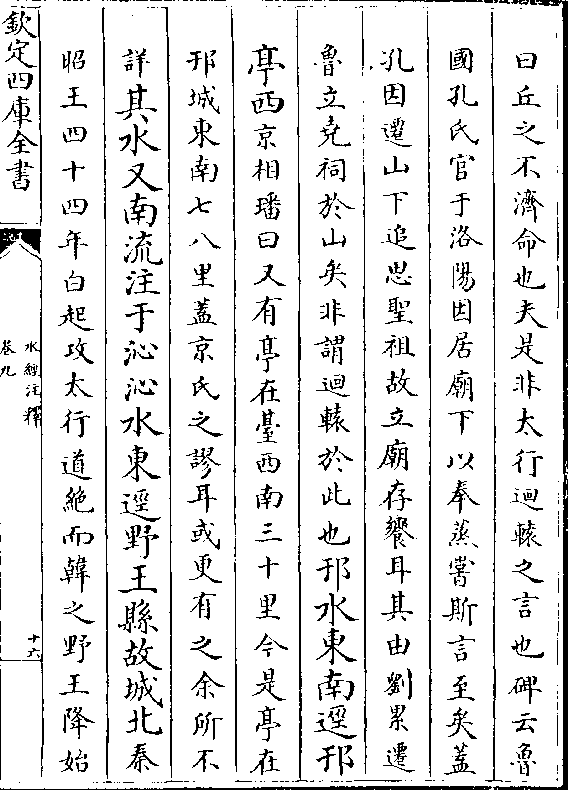 曰丘之不濟命也夫是非太行迴轅之言也碑云魯
國孔氏官于洛陽因居廟下以奉蒸嘗斯言至矣蓋
孔因遷山下追思聖祖故立廟存饗耳其由劉累遷
魯立堯祠於山矣非謂迴轅於此也邘水東南逕邘
亭西京相璠曰又有亭在臺西南三十里今是亭在
邘城東南七八里蓋京氏之謬耳或更有之余所不
詳其水又南流注于沁沁水東逕野王縣故城北秦
昭王四十四年白起攻太行道絶而韓之野王降始
欽定四庫全書
水經注釋
卷九
十六